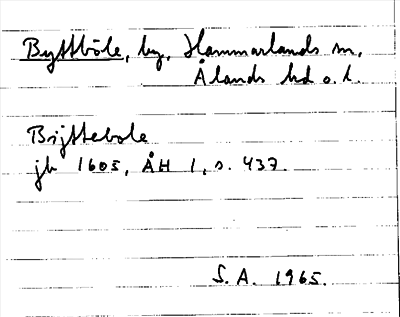 Byttböle, by, Hammarlands sn,
Ålands hd o. l.
Bijttebole
jb 1605, ÅH 1, s. 437.
S.A. 1965.